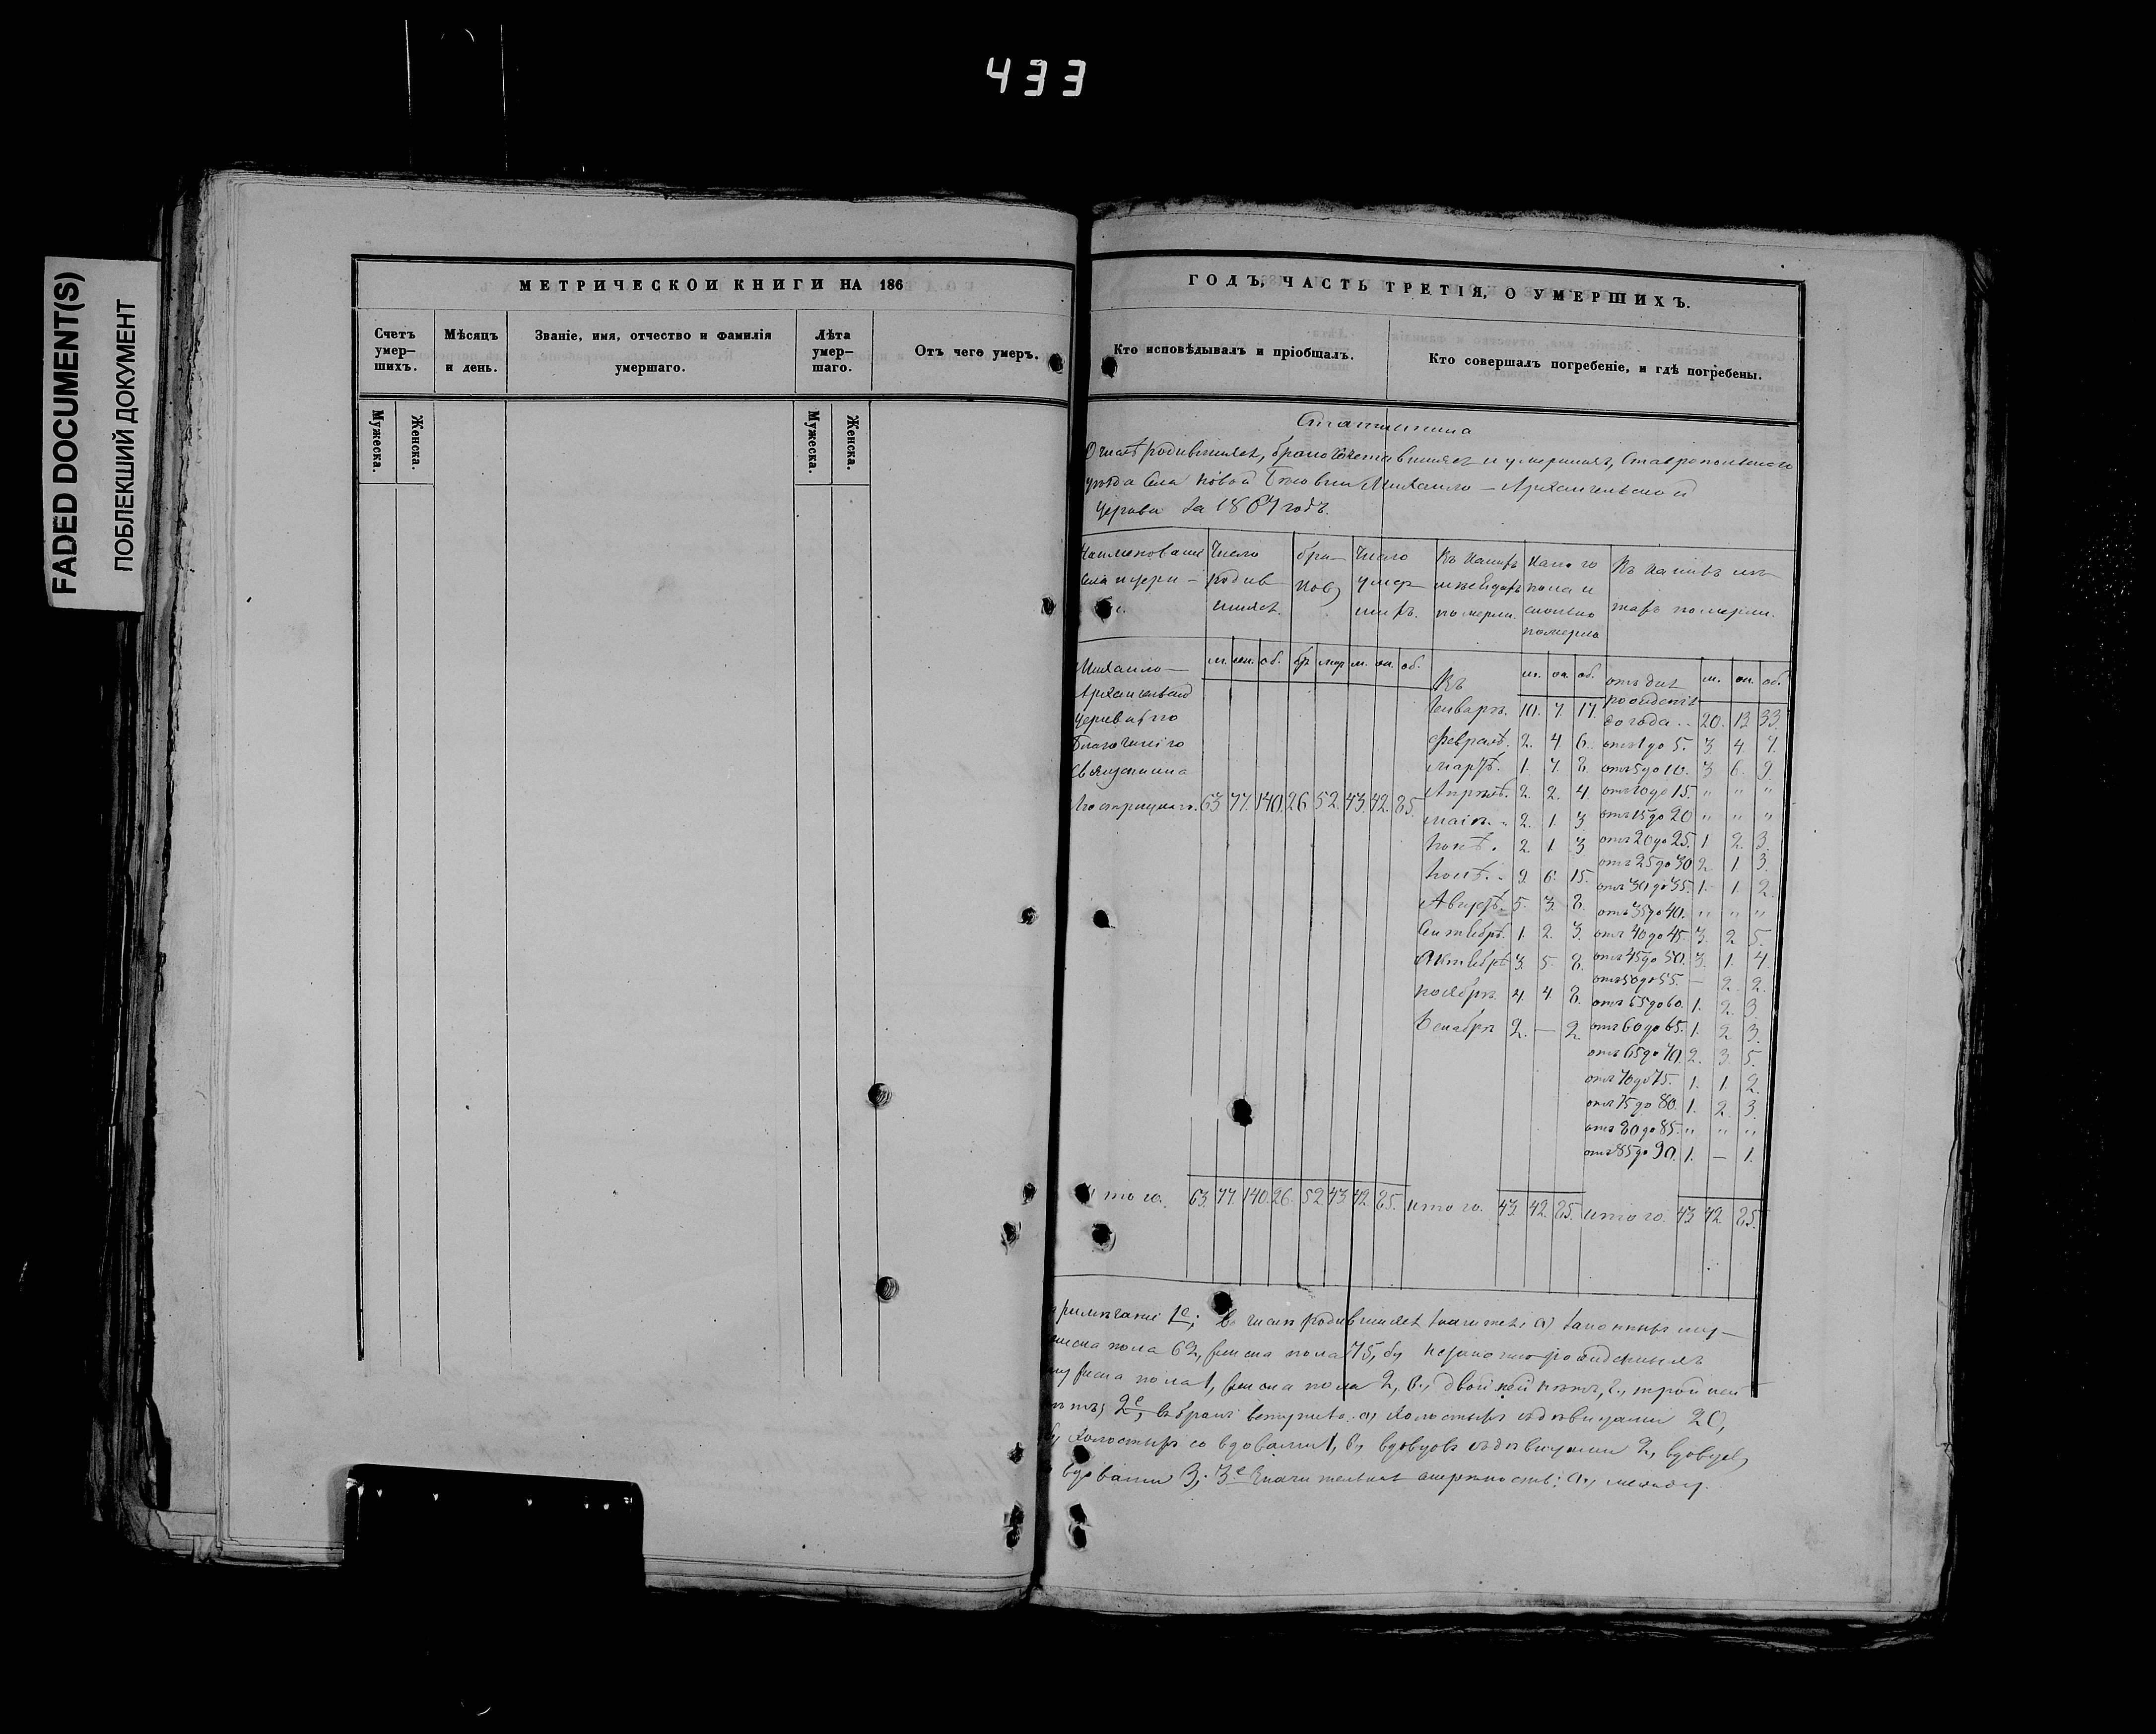 433
FADED DOCUMENT(S)
ПОБЛЕКШИЙ ДОКУМЕНТ
МЕТРИЧЕСКОЙ КНИГИ НА 186
Счетъ умер— шихъ.
Мѣсяцъ и день.
Званіе, имя, отчество и фамилія умершаго.
Лѣта умер— шаго.
Отъ чего умеръ.
Мужеска.
Женска.
Мужеска.
Женска.
ГОДЪ, ЧАСТЬ ТРЕТІЯ, О УМЕРШИХЪ.
Кто исповѣдывалъ и пріобщалъ.
Кто совершалъ погребеніе, и гдѣ погребены.
О числѣ родившихся, бракосочетавшихся и умершихъ, Ставропольскаго
уѣзда села Новой Михаило — Архангельской
Церкви за годъ.
Число родив шихся.
бра— ковъ
Число умер шихъ.
померли.
пола и сколько померло
померли.
м. жен. об. бр. м. ж. об.
Михаило—
Архангельской
церкви
Священника
63. 77. 140. 26. 52. 43. 42. 85.
Въ м. ж. об.
Январѣ. 10. 7. 17.
Февралѣ. 2. 4. 6.
Мартѣ. 1. 7. 8.
Апрѣлѣ. 2. 2. 4.
Маіѣ. 2. 1. 3.
Іюнѣ. 2. 1. 3
Іюлѣ. 9. 6. 15.
Августѣ. 5. 3. 8.
Сентябрѣ. 1. 2. 3.
Октябрѣ 3. 5. 8.
Ноябрѣ. 4. 4. 8.
Декабрѣ 2. — 2.
м. ж. об.
до года. 20. 13. 33.
отъ 1 до 5. 3. 4. 7.
отъ 5 до 10. 3. 6. 9.
отъ 10 до 15. " " "
отъ 15 до 20 " " "
отъ 20 до 25. 1. 2. 3.
отъ 25 до 30 2. 1. 3.
отъ 30 до 35. 1. 1. 2.
отъ 35 до 40. " " "
отъ 40 до 45. 3. 2. 5.
отъ 45 до 50. 3. 1. 4.
отъ 50 до 55. — 2. 2.
отъ до 60. 1. 2. 3.
отъ 60 до 65. 1. 2. 3.
отъ 65 до 70. 2. 3. 5.
отъ 70 до 75. 1. 1. 2.
отъ 75 до 80. 1. 2. 3.
отъ 80 до 85. " " "
отъ 85 до 90. 1. — 1.
63. 77. 140. 26. 52. 43. 42. 85. итого. 43. 42. 85. итого. 43. 42. 85.
1е; въ числѣ родившихся а) законныхъ му—
пола 62, женска пола 75, б,
пола 1, женска пола 2, в., двойней нѣтъ, г., тройней
2е, въ бракъ вступило. а, холостыхъ съ дѣвицами 20,
холостыхъ со вдовами 1, в, вдовцовъ съ дѣвицами 2, вдовцовъ
вдовами 3; 3е Значительная смертность: а., между